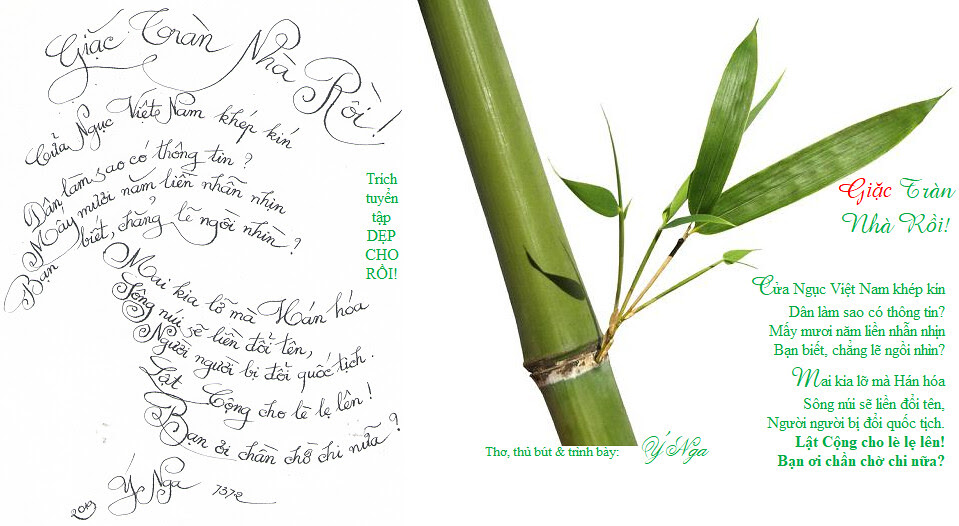 Giặc Tràn Nhà Rồi!
Cửa Ngục Việt Nam khép kín
Dân làm sao có thông tin?
Mấy mươi năm liền nhẫn nhịn
Bạn biết, chẳng lẽ ngồi nhìn?
Mai kia lỡ mà Hán hóa
Sông núi sẽ liền đổi tên,
Người người bị đổi quốc tịch.
Lật Cộng cho lè lẹ lên!
Bạn ơi chần chờ chi nữa?
Ý Nga
2013
Trích
tuyển
tập
DẸP
CHO
RỒI!
Giặc Tràn
Nhà Rồi!
Cửa Ngục Việt Nam khép kín
Dân làm sao có thông tin?
Mấy mươi năm liền nhẫn nhịn
Bạn biết, chẳng lẽ ngồi nhìn?
Mai kia lỡ mà Hán hóa
Sông núi sẽ liền đổi tên,
Người người bị đổi quốc tịch.
Lật Cộng cho lè lẹ lên!
Bạn ơi chần chờ chi nữa?
Thơ, thủ bút & trình bày: Ý Nga